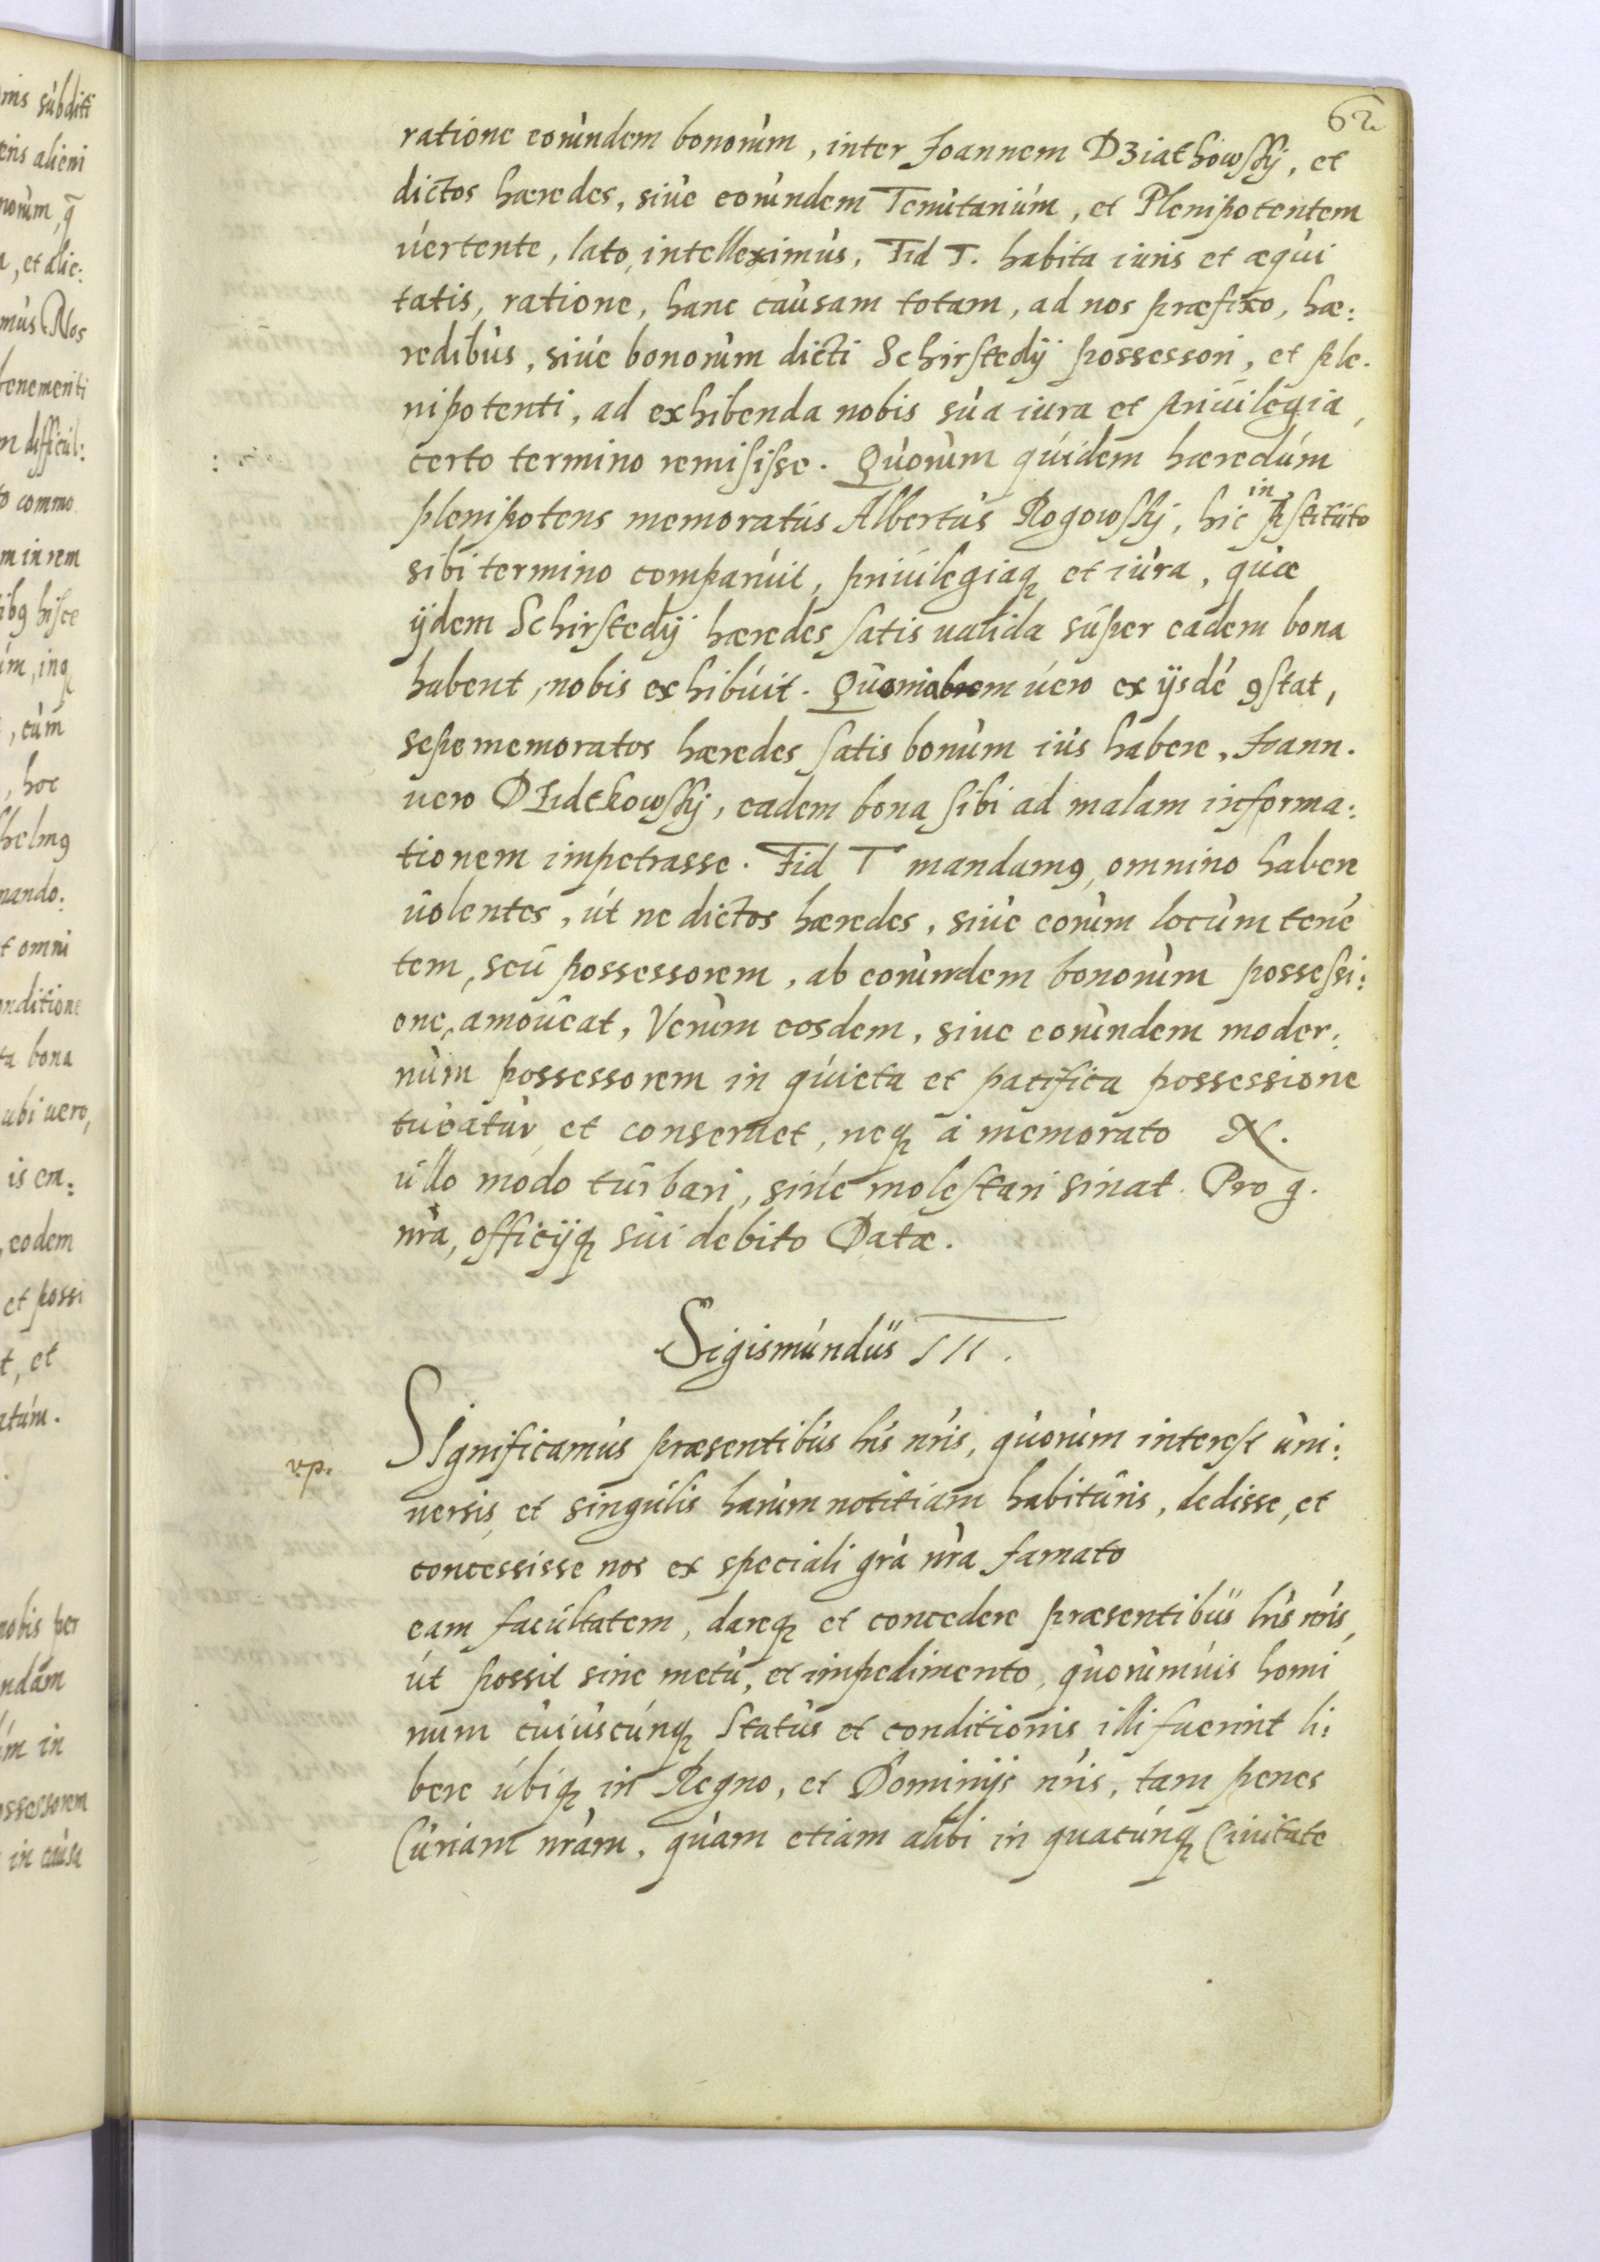 62
ratione eorundem bonorum, inter Joannem Dziathowskj, et
dictos hæredes, siue eorundem Tenutarium, et Plenipotentem
uertente, lato, intelleximus, Fid T. habita iuris et æqui
tatis, ratione, hanc causam totam, ad nos præfixo, hæ:
redibus, siue bonorum dicti Schirstedij possessori, et ple.
nipotenti, ad exhibenda nobis sua iura et priuilegia,
certo termino remisisse. Quorum quidem hæredum
plenipotens memoratus Albertus Rogowskj, hic in pstituto
sibi termino comparuit, priuilegiaq et iura, quæ
ijdem Schirstedij hæredes satis ualida super eadem bona
habent, nobis exhibuit. uero ex ijsdé 9stat,
sepememoratos hæredes satis bonum ius habere, Joann.
uero Dzidtkowskj, eadem bona sibi ad malam informa:
tionem impetrasse. Fid T mandam9, omnino habere
uolentes, ut ne dictos hæredes, siue eorum locum tené
tem, seu possessorem, ab eorundem bonorum possessi:
one, amoueat, Verum eosdem, siue eorundem moder:
num possessorem in quieta et pacifica possessione
tueatur et conseruet, neq á memorato N.
ullo modo turbari, siue molestari sinat. Pro g.
nra, officijq sui debito Datæ.
Sigismundus III.
vp.
Significamus præsentibus lris nris, quorum interest uni:
uersis, et singulis harum notitiam habituris, dedisse, et
concessisse nos ex speciali gra nra famato
eam facultatem, dareq et concedere præsentibus lris nris,
ut possit sine metu, et impedimento, quorumuis homi
num cuiuscunq status et conditionis illi fuerint li:
bere ubiq in Regno, et Dominijs nris, tam penes
Curiam nram, quam etiam alibi in quacunq Ciuitate